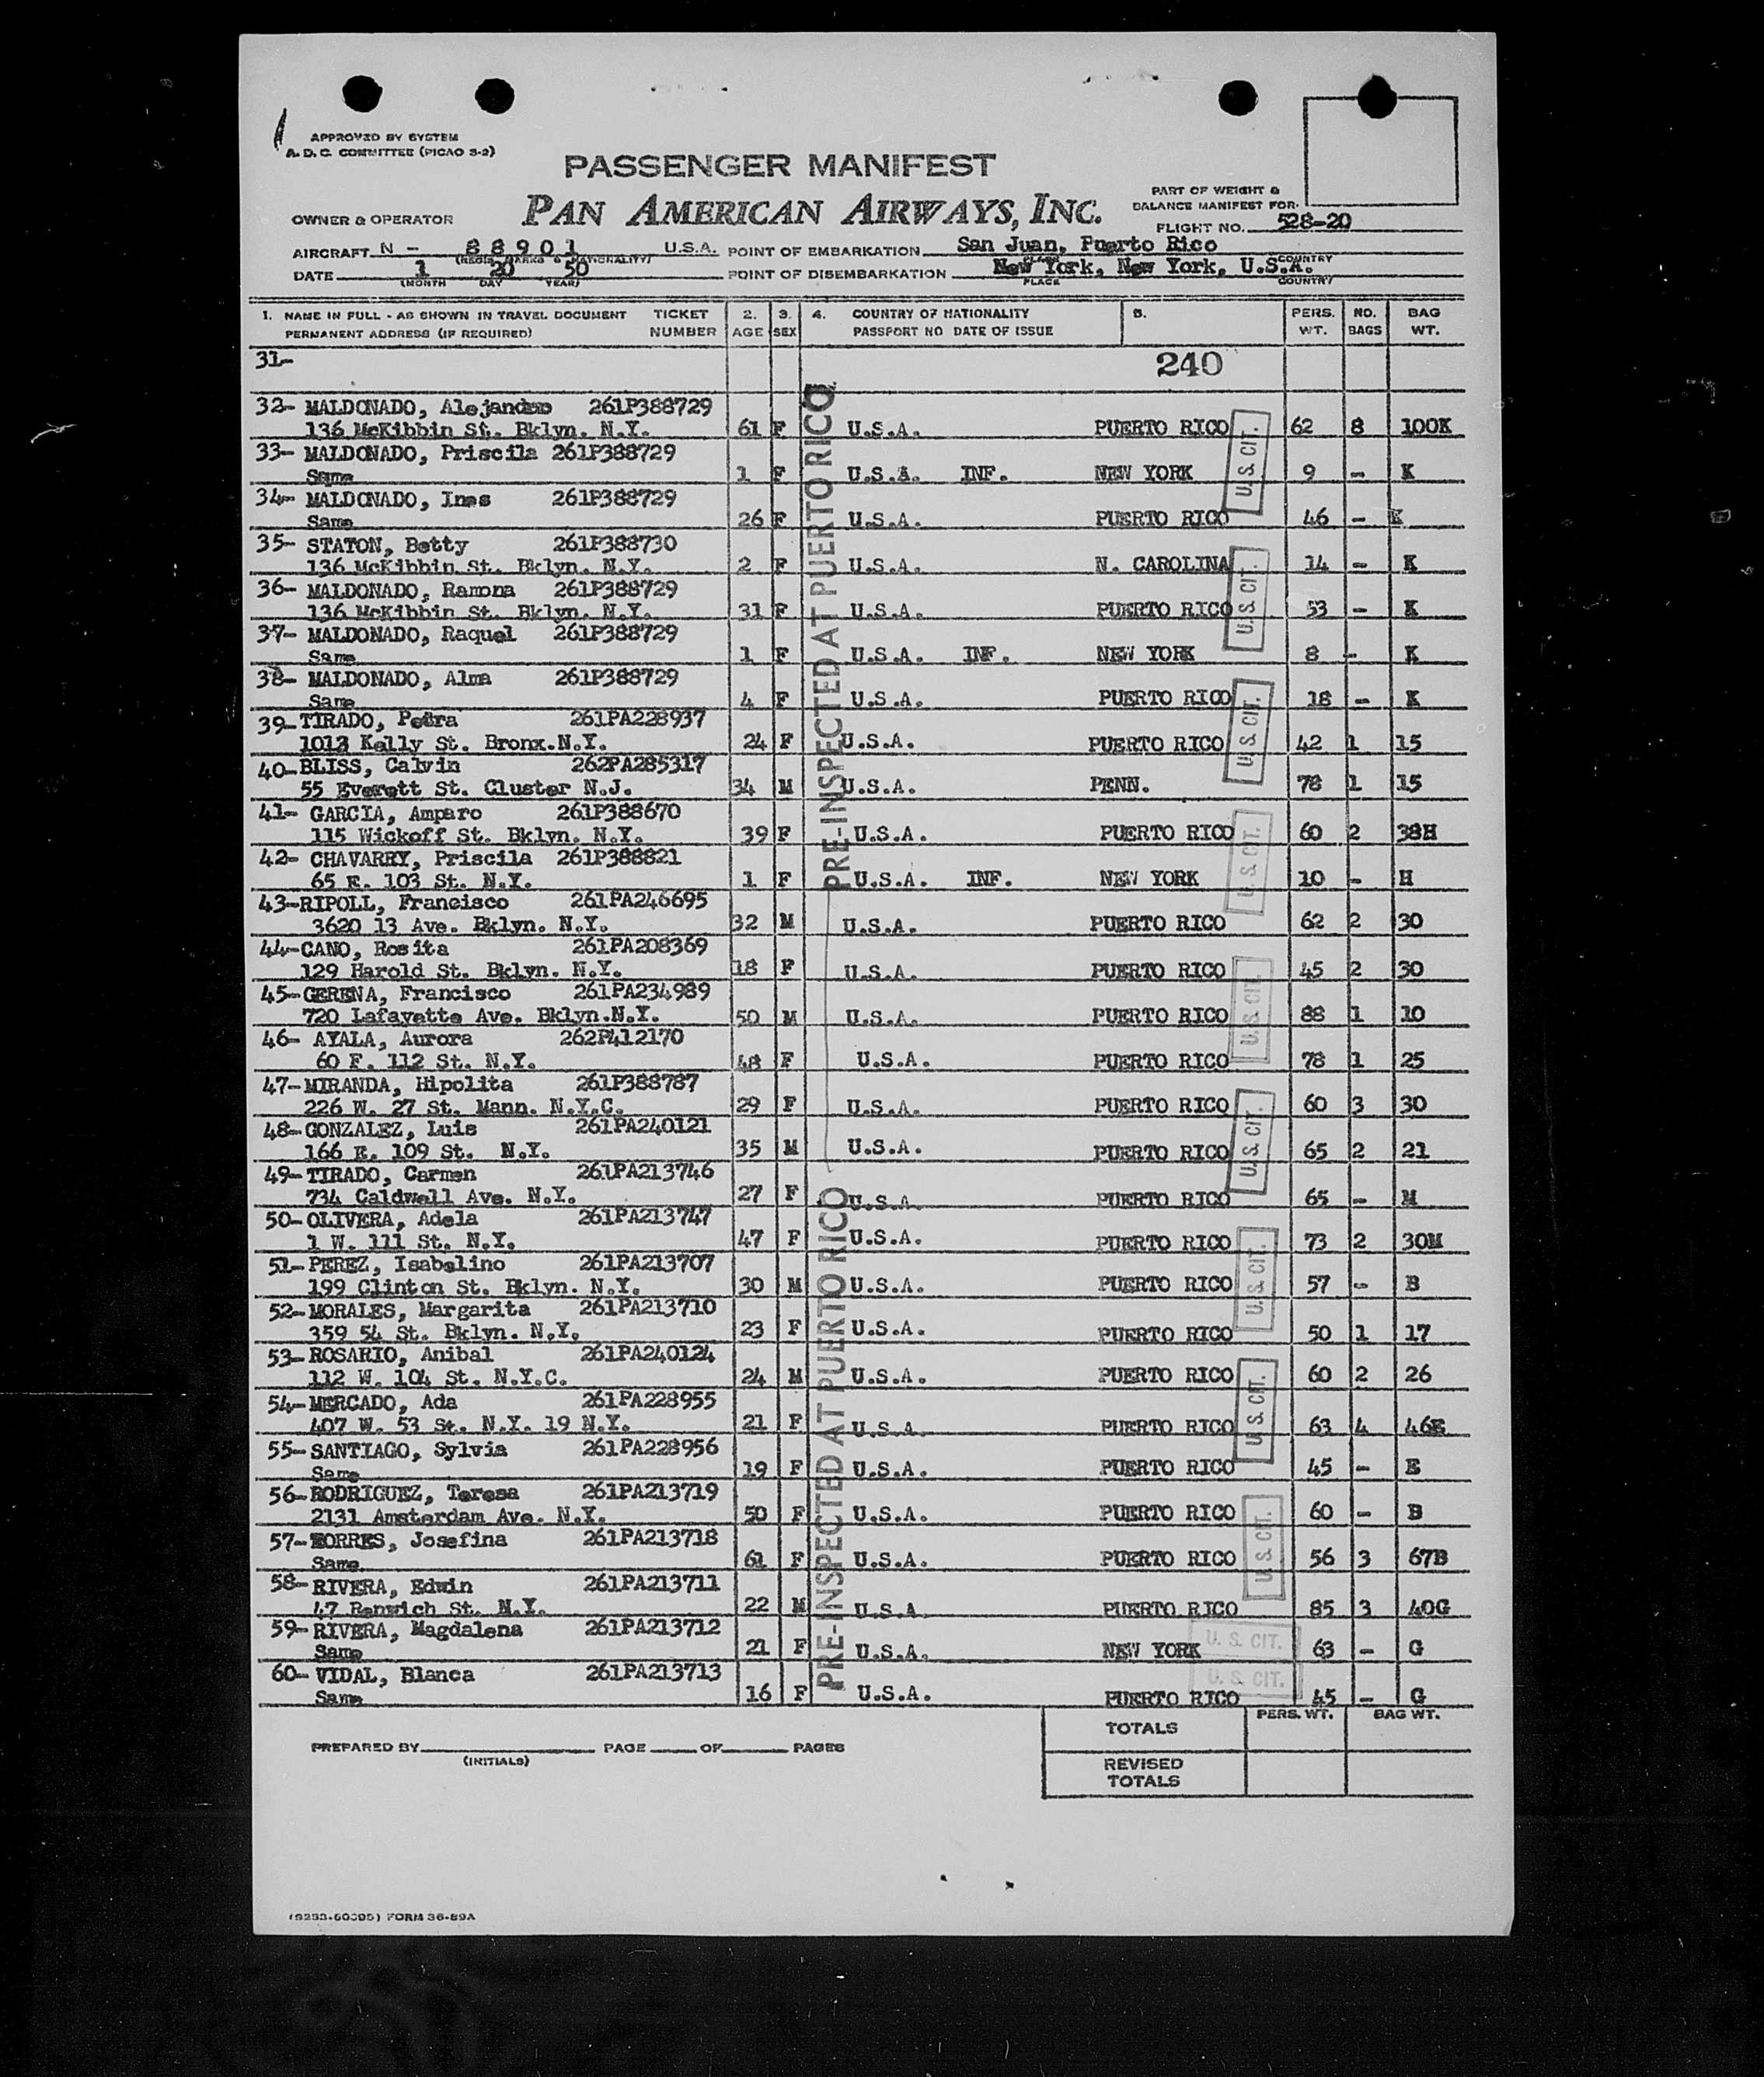 APPROVED BY SYSTEM
A. D. C. COMMITTEE (PICAO S-2)
PASSENGER MANIFEST
PAN AMERICAN AIRWAYS, INC.
PART OF WEIGHT &
BALANCE MANIFEST FOR.
FLIGHT NO. 528-20
OWNER & OPERATOR
AIRCRAFT N - 88901 U.S.A. POINT OF EMBARKATION San Juan, Puerto Rico
(REGIS. MARKS & NATIONALITY) PLACE COUNTRY
DATE 1 20 50 POINT OF DISEMBARKATION New York, New York, U.S.A.
(MONTH DAY YEAR) PLACE COUNTRY
1. NAME IN FULL - AS SHOWN IN TRAVEL DOCUMENT TICKET 2. 3. 4. COUNTRY OF NATIONALITY 5. PERS. NO. BAG
PERMANENT ADDRESS (IF REQUIRED) NUMBER AGE SEX PASSPORT NO DATE OF ISSUE WT. BAGS WT.
31- 240
32- MALDONADO, 261P388729
136 McKibbin St. Bklyn. N.Y. 61 F U.S.A. PUERTO RICO 62 8 100K
33- MALDONADO, Priscila 261P388729
Same 1 F U.S.A. INF. NEW YORK 9 - K
34- MALDONADO, Ines 261P388729
Same 26 F U.S.A. PUERTO RICO 46 - K
35- STATON, Betty 261P388730
136 McKibbin St. Bklyn. N.Y. 2 F U.S.A. N. CAROLINA 14 - K
36- MALDONADO, Ramona 261P388729
136 McKibbin St. Bklyn. N.Y. 31 F U.S.A. PUERTO RICO 53 - K
37- MALDONADO, Raquel 261P388729
Same 1 F U.S.A. INF. NEW YORK 8 - K
38- MALDONADO, Alma 261P388729
Same 4 F U.S.A. PUERTO RICO 18 - K
39- TIRADO, Petra 261PA228937
1013 Kelly St. Bronx.N.Y. 24 F U.S.A. PUERTO RICO 42 1 15
40- BLISS, Calvin 262PA285317
55 Everett St. Cluster N.J. 34 M U.S.A. PENN. 78 1 15
41- GARCIA, Amparo 261P388670
115 Wickoff St. Bklyn. N.Y. 39 F U.S.A. PUERTO RICO 60 2 38H
42- CHAVARRY, Priscila 261P388821
65 E. 103 St. N.Y. 1 F U.S.A. INF. NEW YORK 10 - H
43- RIPOLL, Francisco 261PA246695
3620 13 Ave. Bklyn. N.Y. 32 M U.S.A. PUERTO RICO 62 2 30
44- CANO, Rosita 261PA208369
129 Harold St. Bklyn. N.Y. 18 F U.S.A. PUERTO RICO 45 2 30
45- GERENA, Francisco 261PA234989
720 Lafayette Ave. Bklyn.N.Y. 50 M U.S.A. PUERTO RICO 88 1 10
46- AYALA, Aurora 262P412170
60 E. 112 St. N.Y. 48 F U.S.A. PUERTO RICO 78 1 25
47- MIRANDA, Hipolita 261P388787
226 W. 27 St. Mann. N.Y.C. 29 F U.S.A. PUERTO RICO 60 3 30
48- GONZALEZ, Luis 261PA240121
166 E. 109 St. N.Y. 35 M U.S.A. PUERTO RICO 65 2 21
49- TIRADO, Carmen 261PA213746
734 Caldwell Ave. N.Y. 27 F U.S.A. PUERTO RICO 65 - M
50- OLIVERA, Adela 261PA213747
1 W. 111 St. N.Y. 47 F U.S.A. PUERTO RICO 73 2 30M
51- PEREZ, Isabelino 261PA213707
199 Clinton St. Bklyn. N.Y. 30 M U.S.A. PUERTO RICO 57 - B
52- MORALES, Margarita 261PA213710
359 54 St. Bklyn. N.Y. 23 F U.S.A. PUERTO RICO 50 1 17
53- ROSARIO, Anibal 261PA240124
112 W. 104 St. N.Y.C. 24 M U.S.A. PUERTO RICO 60 2 26
54- MERCADO, Ada 261PA228955
407 W. 53 St. N.Y. 19 N.Y. 21 F U.S.A. PUERTO RICO 63 4 46E
55- SANTIAGO, Sylvia 261PA228956
Same 19 F U.S.A. PUERTO RICO 45 - E
56- RODRIGUEZ, Teresa 261PA213719
2131 Amsterdam Ave. N.Y. 50 F U.S.A. PUERTO RICO 60 - B
57- TORRES, Josefina 261PA213718
Same 61 F U.S.A. PUERTO RICO 56 3 67B
58- RIVERA, Edwin 261PA213711
47 Renwich St. N.Y. 22 M U.S.A. PUERTO RICO 85 3 40G
59- RIVERA, Magdalena 261PA213712
Same 21 F U.S.A. NEW YORK 63 - G
60- VIDAL, Blanca 261PA213713
Same 16 F U.S.A. PUERTO RICO 45 - G
PRE-INSPECTED AT PUERTO RICO
PRE-INSPECTED AT PUERTO RICO
U.S. CIT.
U.S. CIT.
U.S. CIT.
U.S. CIT.
U.S. CIT.
U.S. CIT.
U.S. CIT.
U.S. CIT.
U.S. CIT.
U. S. CIT.
U. S. CIT.
PERS. WT. BAG WT.
TOTALS
PREPARED BY PAGE OF PAGES
(INITIALS)
REVISED
TOTALS
FORM 36-89A